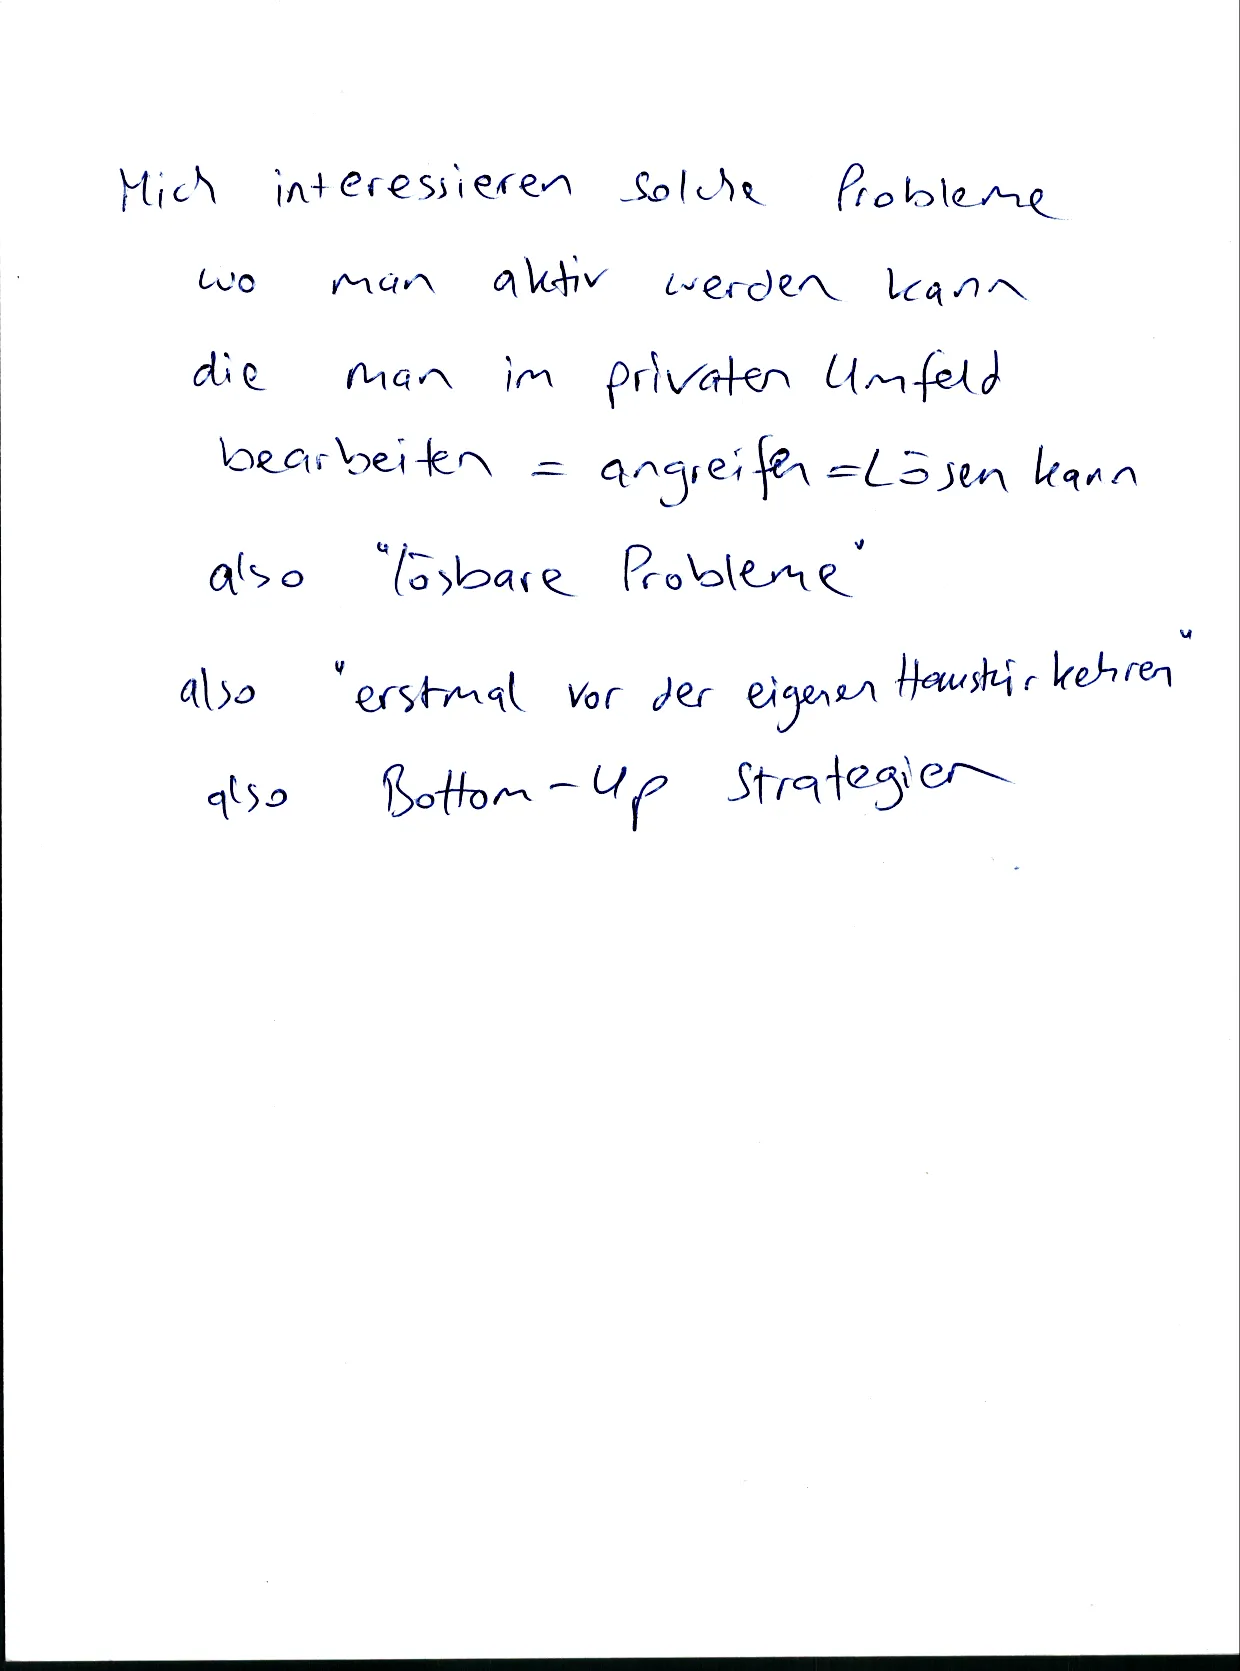 Mich interessieren solche Probleme
wo man aktiv werden kann
die man im privaten Umfeld
bearbeiten = angreifen = Lösen kann
also "lösbare Probleme"
also "erstmal vor der eigenen Haustür kehren"
also Bottom-Up Strategien